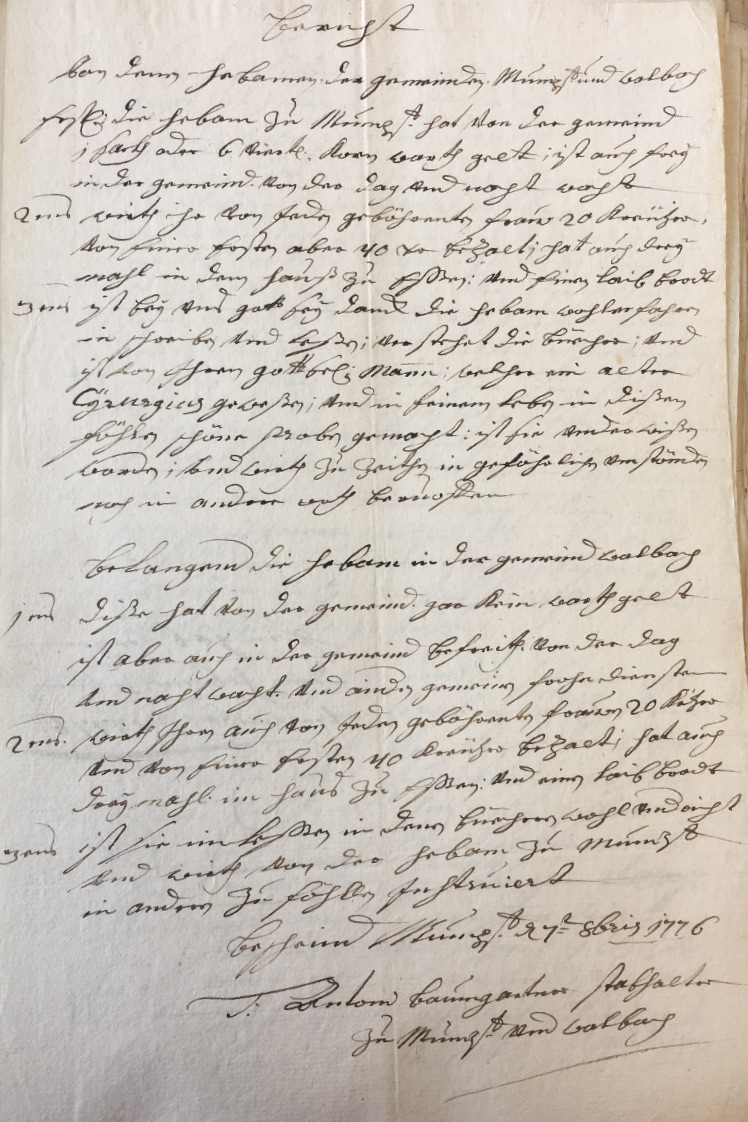 Bericht
von denen hebamen der gemeinden Mumpf und walbach
Erstl: die hebam zu Mumpf hat von der gemeind
oder 6 viertl. Korn warth gelt; ist auch frey
in der gemeind von der dag und nacht wacht
2tens wirth ihr von Jeden gebährenten frauw 20 Kreützer,
von Einer Ersten aber 40 xr bezalt; hat auch drey
mahl in dem hauß zu Essen: und Einen laib brodt
3tens ist bey uns gott sey danck die hebam wohlerfahren
in schreiben und leßen; verstehet die bücher; und
ist von Ihren gottsel: Mann; welcher ein alter
Cÿrurgicus geweßen; und in seinem leben in dißen
föhlen schöne proben gemacht: ist sie underwißen
worden; und wirth zu zeithen in geföhrlichen umständen
noch in andere orth beruoffen
Belangend die hebam in der gemeind walbach
1tens diße hat von der gemeind gar kein warthgelt
ist aber auch in der gemeind befreith von der dag
und nacht wacht. und andern gemeinen frohn diensten
2tens. wirth Ihren auch von Jeden gebährenten frauwen 20 Kützer
und von Einer Ersten 40 Kreützer bezalt; hat auch
drey mahl im haus zu Essen: und einen laib brodt
3tens ist sie im leßen in denen büecheren wohl
und wirth von der hebam zu Mumpf
in andern zu föhllen Instruiert
bescheind Mumpf d 7t 8bris 1776
T: Antoni Baumgartner stabhalter
zu Mumpf und walbach